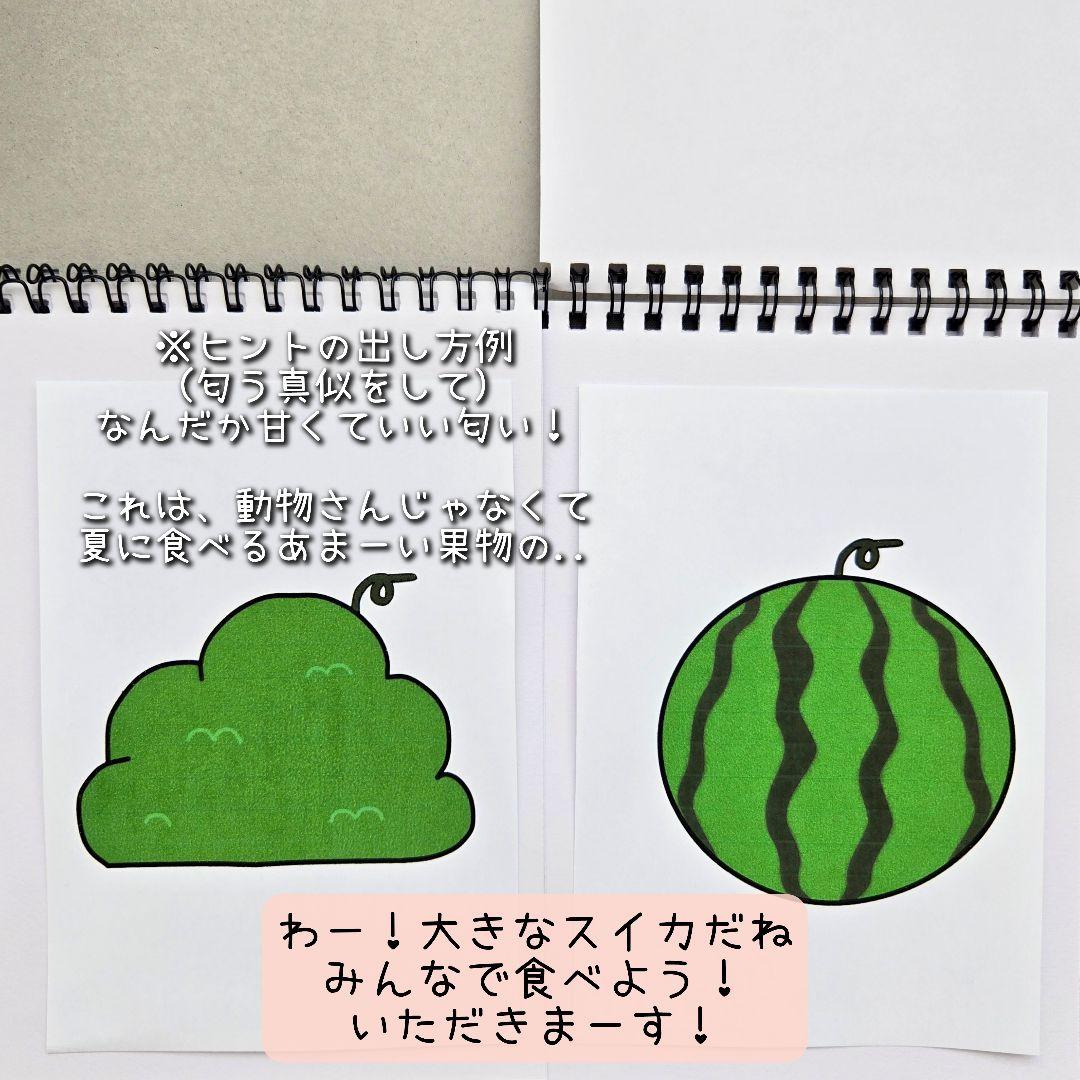 ※ヒントの出し方例
（匂う真似をして）
なんだか甘くていい匂い！
これは、動物さんじゃなくて
夏に食べるあまーい果物の..
わー！大きなスイカだね
みんなで食べよう！
いただきまーす！